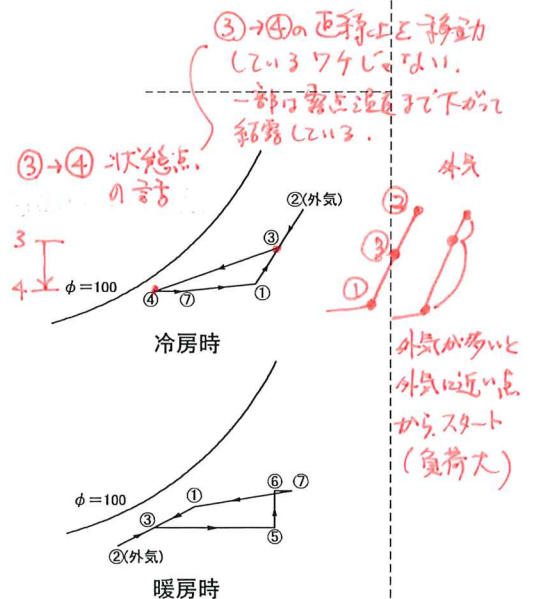 ③→④の直線上を移動
しているワケじゃない.
一部は露点温度まで下がって
結露している.
③→④ 状態点
の話
外気
②(外気)
③
3
↓
4.
φ=100
④
⑦
①
冷房時
②
③
①
外気が多いと
外気に近い点
から、スタート
(負荷大)
φ=100
①
⑥
⑦
③
⑤
②(外気)
暖房時